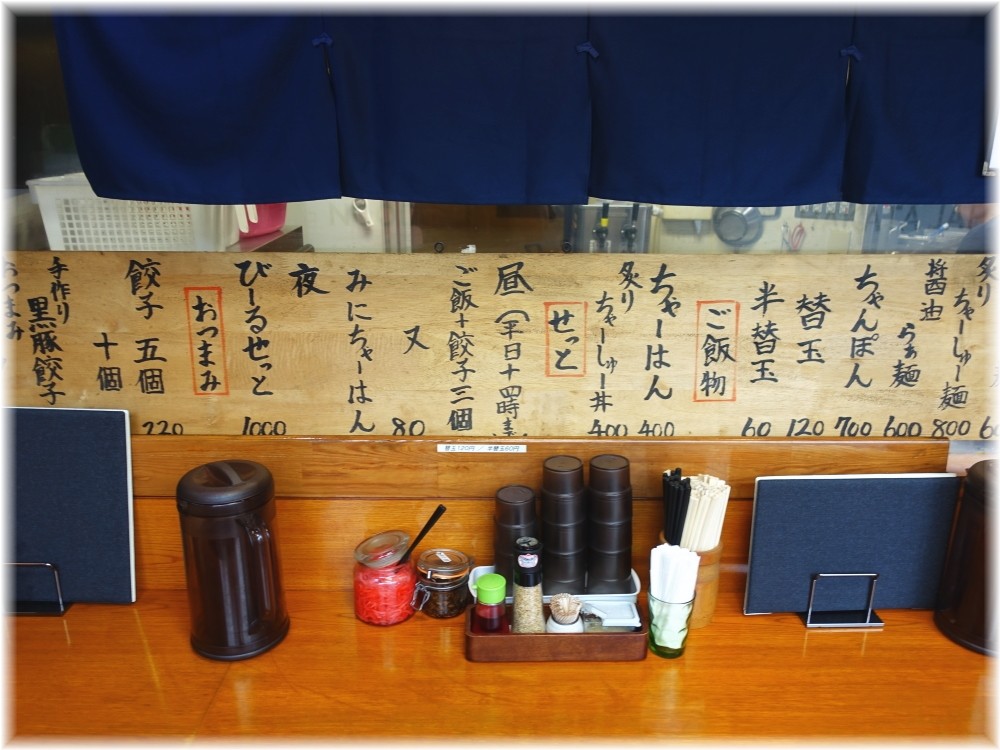 炙り
ちゃーしゅー麺
800
醤油
らぁ麺
600
ちゃんぽん
700
替玉
120
半替玉
60
ご飯物
ちゃーはん
400
炙り
ちゃーしゅー丼
400
せっと
昼(平日十四時
ご飯+餃子三個
又
80
みにちゃーはん
夜
びーるせっと
1000
おつまみ
餃子 五個
220
十個
手作り
黒豚餃子
おつまみ
替玉120円 / 半替玉60円